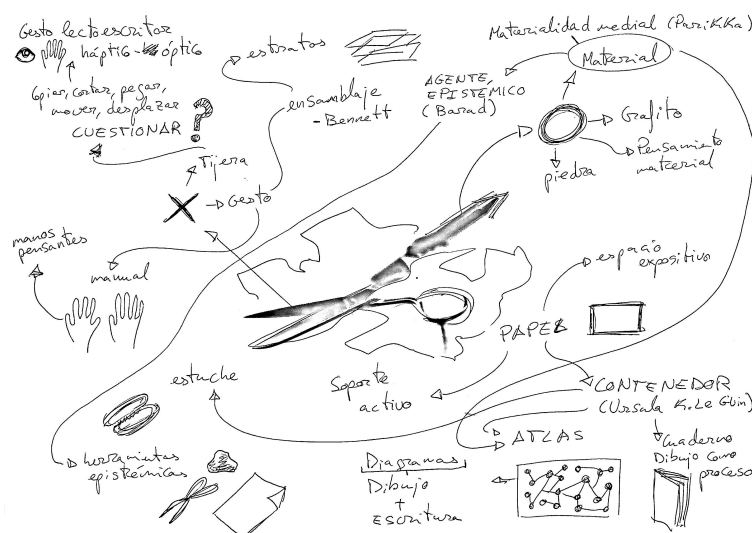 Gesto lectoescritor
háptico - óptico
Copiar, cortar, pegar,
mover, desplazar
CUESTIONAR ?
estratos
ensamblaje
- Bennett
Materialidad medial (Parikka)
Material
AGENTE,
EPISTÉMICO
(Barad)
Grafito
Pensamiento
material
piedra
Tijera
Gesto
manos
pensantes
manual
espacio
expositivo
PAPEL
estuche
Soporte
activo
CONTENEDOR
(Ursula K. Le Guin)
ATLAS
herramientas
epistémicas
Diagramas
Dibujo
+
ESCRITURA
Cuaderno
Dibujo como
proceso